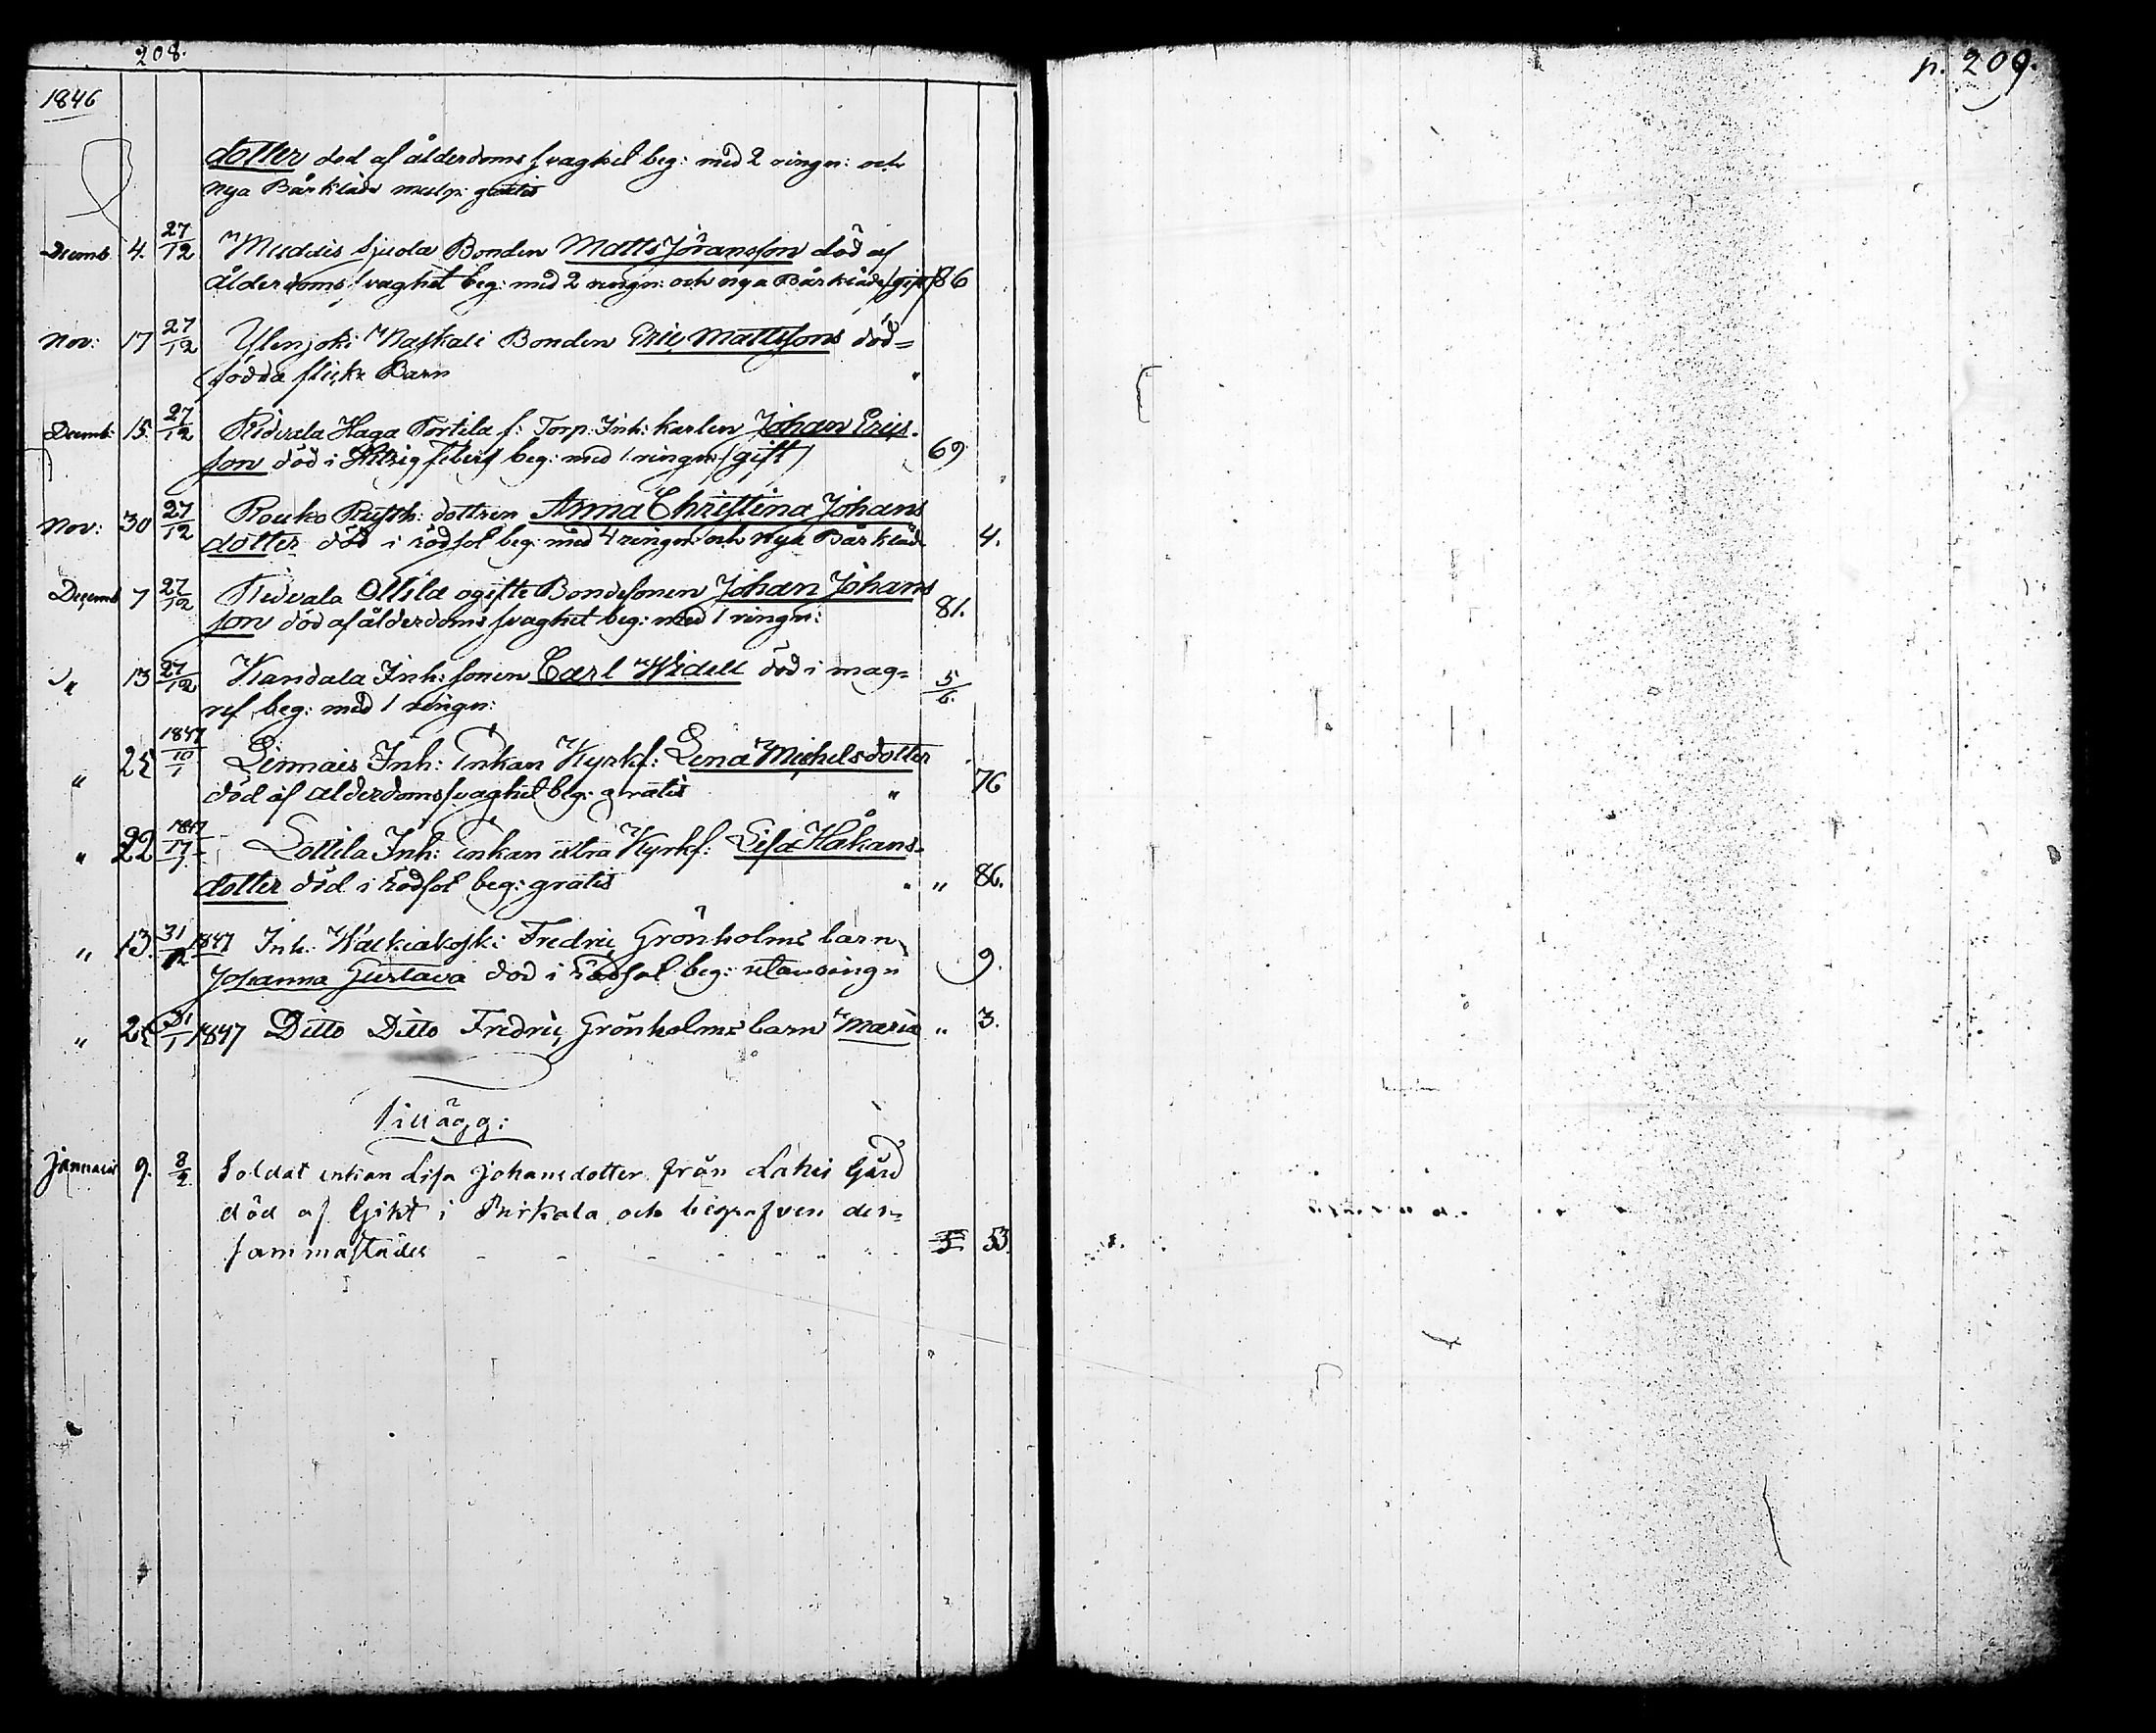 208.
p. 209.
1846
dotter död af ålderdomssvaghet beg: med 2 ringn: och
nya Bårkläde gratis
Decemb. 4. 27/12 Sjuola Bonden Matts Jöransson död af
ålderdomssvaghet beg: med 2 ringn: och nya Bårkläde /gift/ 86
Nov: 17 27/12 Ylenjoki Naskali Bonden Eric Mattssons död=
födda flicke Barn "
Decemb: 15. 27/12 Ridvala Haga Torp: Inh: karlen Johan Erics-
son död i feber beg: med 1 ringn: /gift/ 69
Nov: 30 27/12 Rouko Rusth: dottren Anna Christina Johans
dotter död i rödsot beg: med 4 ringn: och nya Bårkläde 4.
Decemb 7 27/12 Ridvala Ollila ogifte Bondesonen Johan Johans
son död af ålderdomssvaghet beg: med 1 ringn: 81.
" 13 27/12 Kandala Inh: sonen Carl Widell död i mag=
ref beg: med 1 ringn: 5/6.
" 25 1847 10/1 Linnais Inh: Enkan Kyrkf: Lena Michelsdotter
död af ålderdomssvaghet beg: gratis " 76
" 22 1847 17/1 Lottila Inh: Enkan extra Kyrkf: Lisa Håkans-
dotter död i rödsot beg: gratis " " 86.
" 13. 31/12 1847 Inh: Wäckiäkoski Fredric Grönholms barn
Johanna Gustava död i rödsot beg: utan ringn 9.
" 25 31/1 1847 Ditto Ditto Fredric Grönholms barn Maria " 3.
Tillägg:
Januarii 9. 8/2 Soldat enkan Lisa Johansdotter från Lahis Gård
död af Gikt i Birkala och begrafven der=
sammastädes 53.